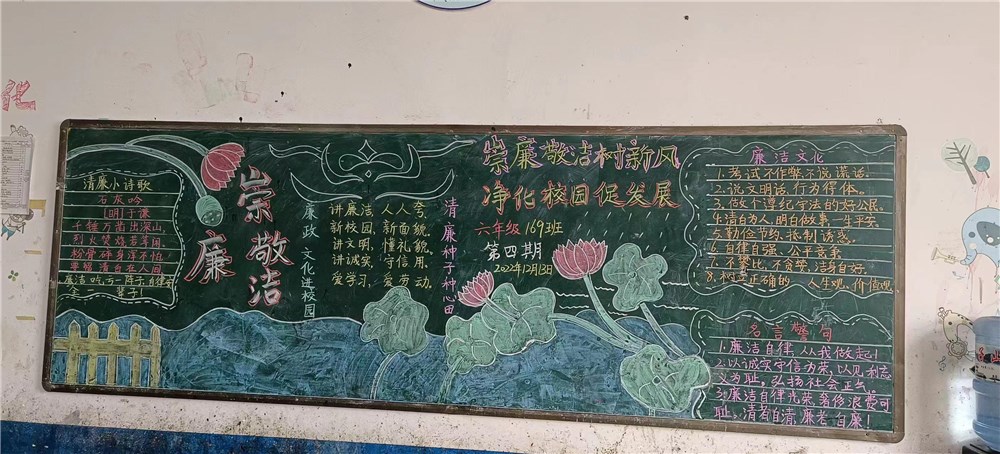 清廉小诗歌
石灰吟
[明]于谦
千锤万凿出深山,
烈火焚烧若等闲。
粉骨碎身浑不怕,
要留清白在人间。
崇廉
敬洁
廉政文化进校园
讲廉洁,人人夸,
新校园,新面貌,
讲文明,懂礼貌,
讲诚实,守信用,
爱学习,爱劳动。
清廉种子种心田
崇廉敬洁树新风
净化校园促发展
六年级169班
第四期
2022年12月13日
廉洁文化
1.考试不作弊不说谎话。
2.说文明话,行为得体。
3.做个遵纪守法的好公民。
4.清白为人,明白做事,一生平安。
5.勤俭节约,抵制诱惑。
6.自律自强,公平竞争。
7.不攀比,不贪婪,洁身自好。
8.树立正确的人生观,价值观
名言警句
1.廉洁自律,从我做起!
2.以诚实守信为荣,以见利忘
义为耻,弘扬社会正气
3.廉洁自律光荣,奢侈浪费可
耻,清者自清,廉者自廉!
化